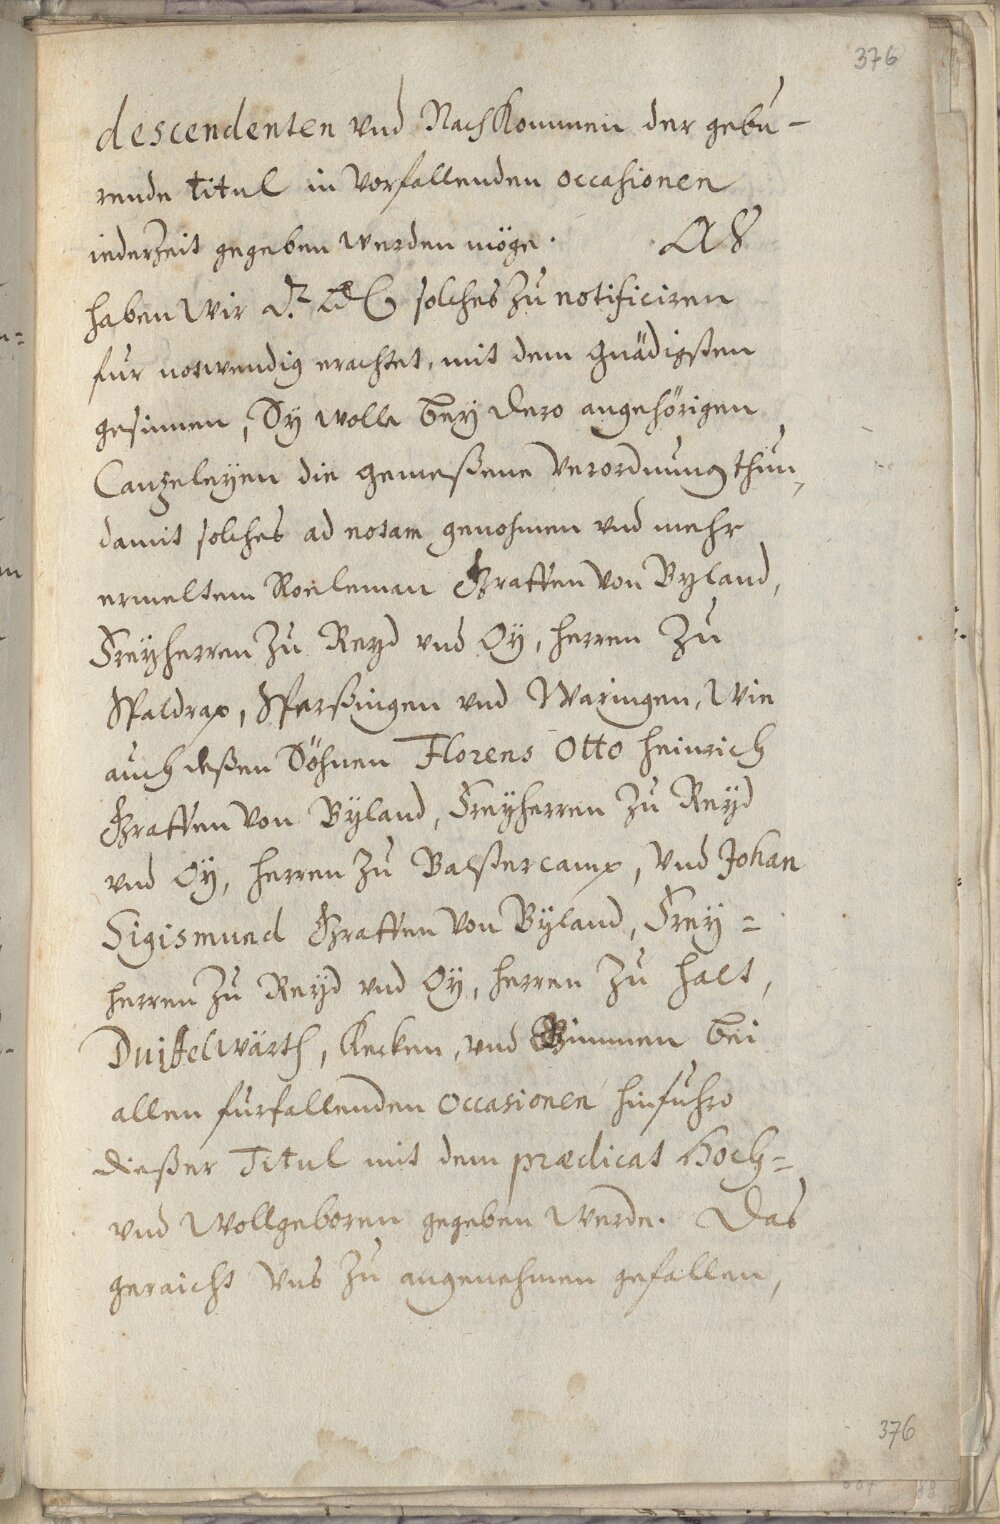 376
descendenten vnd Nachkommen der gebü-
rende titul in vorfallenden occasionen
iederzeit gegeben werden möge. Alß
haben Wir solches zu notificiren
für notwendig erachtet, mit dem gnädigsten
gesinnen, Sy wolle bey dero angehörigen
Cantzeleyen die gemeßene verordnung thun,
damit solches ad notam genohmen vnd mehr
ermeltem Roeleman Graffen von Byland,
Freyherren zu Reyd vnd Oy, herren zu
Spaldrop, vnd Waringen, Wie
auch deßen Söhnen Florens Otto Heinrich
Graffen von Byland, Freyherren zu Reyd
vnd Oy, herren zu Balstercamp, vnd Johan
Sigismund Graffen von Byland, Frey=
herren zu Reyd vnd Oy, herren zu Halt,
Duiffelwärth, Kecken, vnd Bimmen bei
allen fürfallenden occasionen hinführo
dießer Titul mit dem prædicat Hoch=
vnd Wollgeboren gegeben werde. Das
geraicht Vns zu angenehmen gefallen,
376